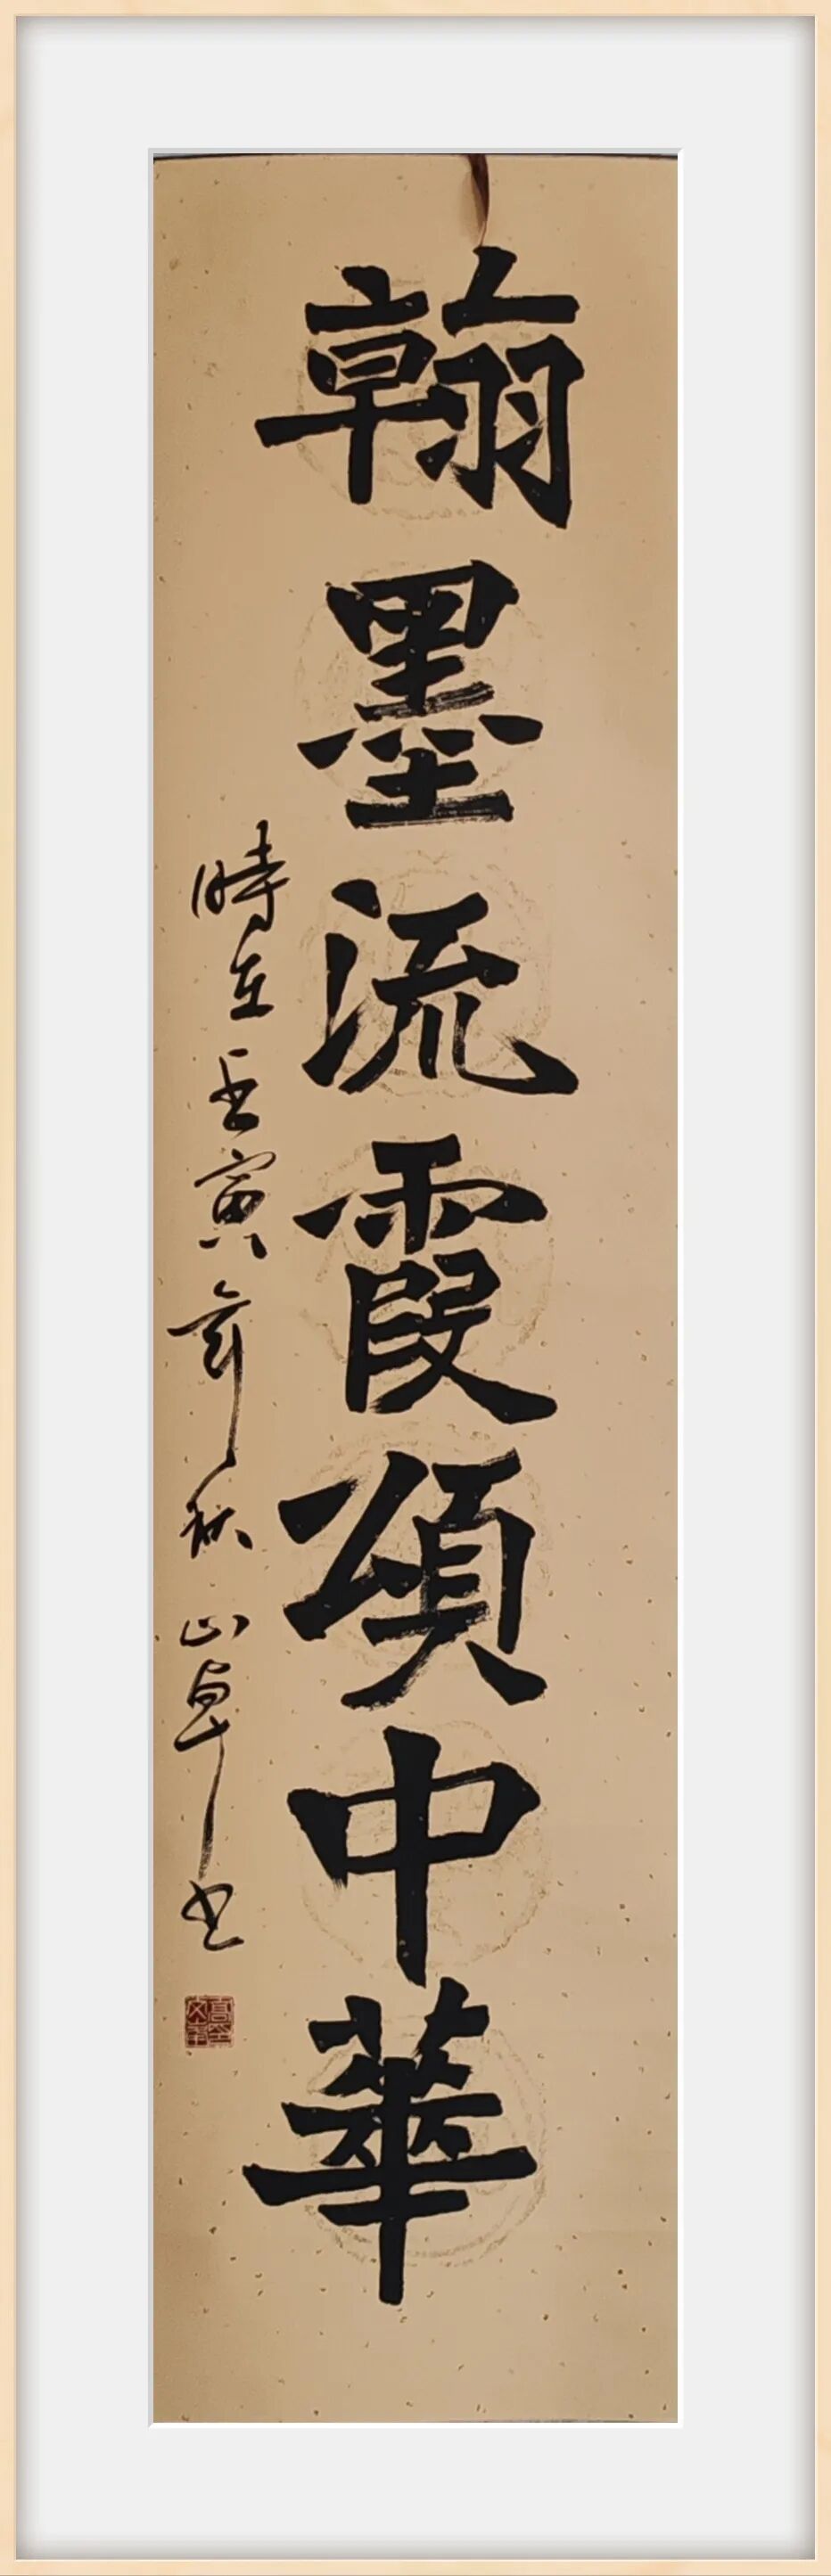 翰墨流霞頌中華
時在壬寅年秋山卓书